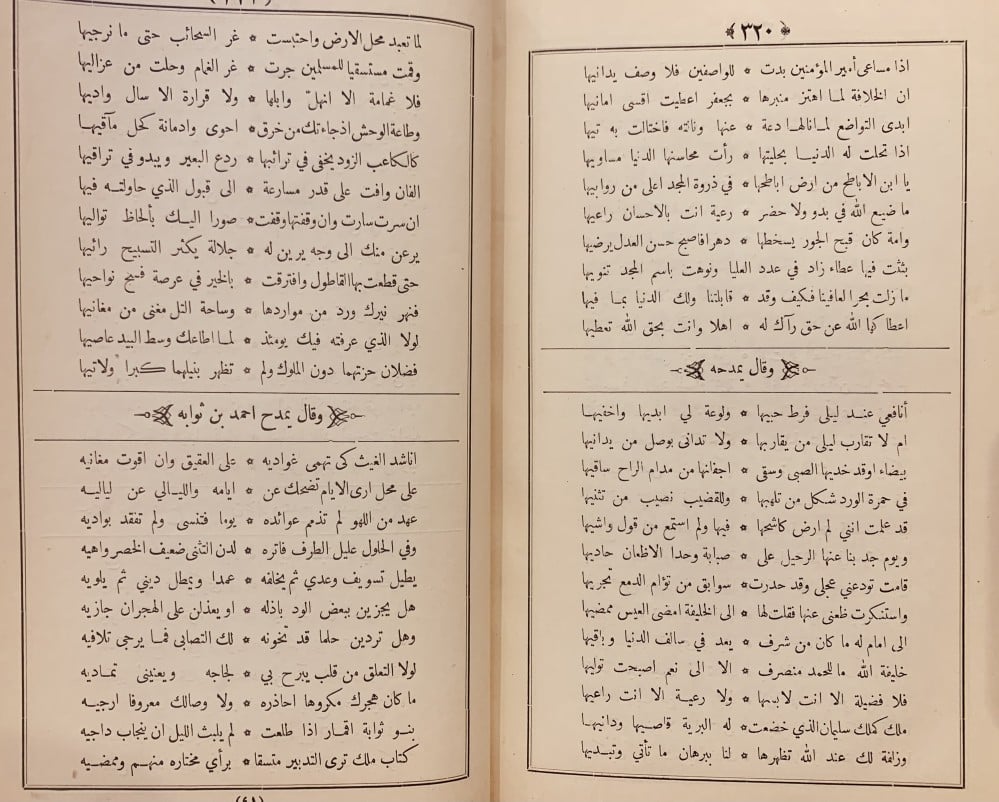 ﴿ ٣٢٠ ﴾
اذا مساعى أمير المؤمنين بدت * للواصفين فلا وصف يدانيها
ان الخلافة لما اهتز منبرها * بجعفر اعطيت اقصى امانيها
ابدى التواضع لما نالها دعة * عنها ونالته فاختالت به تيها
اذا تجلت له الدنيا بحليتها * رأت محاسنها الدنيا مساويها
يا ابن الاباطح من ارض اباطحها * في ذروة المجد اعلى من روابيها
ما ضيع الله في بدو ولا حضر * رعية انت بالاحسان راعيها
وامة كان قبح الجور يسخطها * دهرا فاصبح حسن العدل يرضيها
بثثت فيها عطاء زاد في عدد العليا ونوهت باسم المجد تنويها
ما زلت بحرا لعافينا فكيف وقد * قابلتنا ولك الدنيا بما فيها
اعطاكها الله عن حق رآك له * اهلا وانت بحق الله تعطيها
وقال يمدحه
أنافعي عند ليلى فرط حبيها * ولوعة لي ابديها واخفيها
ام لا تقارب ليلى من يقاربها * ولا تدانى بوصل من يدانيها
بيضاء اوقد خديها الصبى وسقى * اجفانها من مدام الراح ساقيها
في حمرة الورد شكل من تلهبها * وللقضيب نصيب من تثنيها
قد علمت انني لم ارض كاشحها * فيها ولم استمع من قول واشيها
ويوم جد بنا عنها الرحيل على * صبابة وحدا الاظعان حاديها
قامت تودعني عجلى وقد حدرت * سوابق من تؤام الدمع تجريها
واستنكرت ظعنى عنها فقلت لها * الى الخليفة امضى العيس ممضيها
الى امام له ما كان من شرف * يعد في سالف الدنيا وباقيها
خليفة الله ما للحمد منصرف * الا الى نعم اصبحت توليها
فلا فضيلة الا انت لابسها * ولا رعية الا انت راعيها
ملك كملك سليمان الذي خضعت * له البرية قاصيها ودانيها
وزلفة لك عند الله تظهرها * لنا ببرهان ما تأتي وتبديها
لما تعبد محل الارض واحتبست * غر السحائب حتى ما نرجيها
وقمت مستسقيا للمسلمين جرت * غر الغمام وحلت من عزاليها
فلا غمامة الا انهل وابلها * ولا قرارة الا سال واديها
وطاعة الوحش اذ جاءتك من خرق * احوى وادمانة كحل مآقيها
كالكاعب الرود يخفى في ترائبها * ردع العبير ويبدو في تراقيها
الفان وافت على قدر مسارعة * الى قبول الذي حاولته فيها
ان سرت سارت وان وقفتها وقفت * صورا اليك بألحاظ تواليها
يرعن منك الى وجه يرين له * جلالة يكثر التسبيح رائيها
حتى قطعت بها القاطول وافترقت * بالحير في عرصة فسيح نواحيها
فنهر نيزك ورد من مواردها * وساحة التل مغنى من مغانيها
لولا الذي عرفته فيك يومئذ * لما اطاعك وسط البيد عاصيها
فضلان حزتهما دون الملوك ولم * تظهر بنيلهما كبرا ولا تيها
وقال يمدح احمد بن ثوابه
اناشد الغيث كى تهمى غواديه * على العقيق وان اقوت مغانيه
على محل ارى الايام تضحك عن * ايامه والليالي عن لياليه
عهد من اللهو لم تذمم عوائده * يوما فتنسى ولم تفقد بواديه
وفي الحلول عليل الطرف فاتره * لدن التثنى ضعيف الخصر واهيه
يطيل تسويف وعدي ثم يخلفه * عمدا ويمطل ديني ثم يلويه
هل يجزين ببعض الود باذله * او يعذلن على الهجران جازيه
وهل تردين حلما قد تخونه * لك التصابى فما يرجى تلافيه
لولا التعلق من قلب يبرح بي * لجاجه ويعنيني تماديه
ما كان هجرك مكروها احاذره * ولا وصالك معروفا ارجيه
بنو ثوابة اقمار اذا طلعت * لم يلبث الليل ان ينجاب داجيه
كتاب ملك ترى التدبير متسقا * برأي مختاره منهم وممضيه
(٤١)